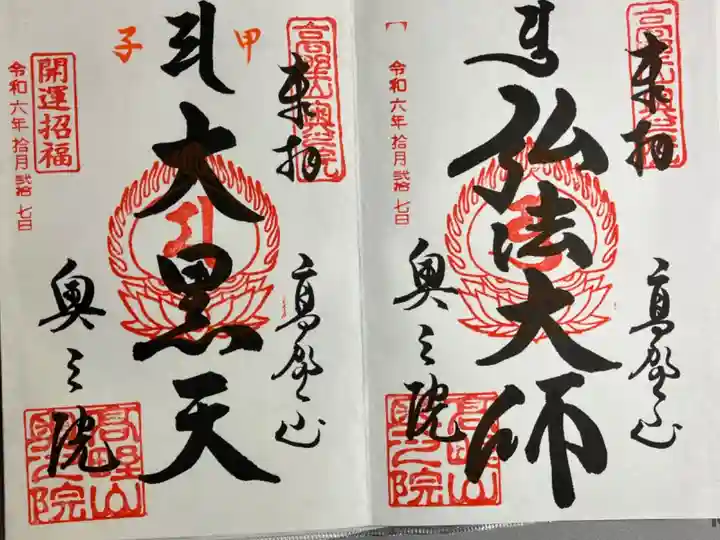 高野山奥之院
奉拝
弘法大師
高野山
奥之院
令和六年拾月弐拾七日
高野山奥之院
高野山奥之院
奉拝
甲子
大黒天
高野山
奥之院
開運招福
令和六年拾月弐拾七日
高野山奥之院